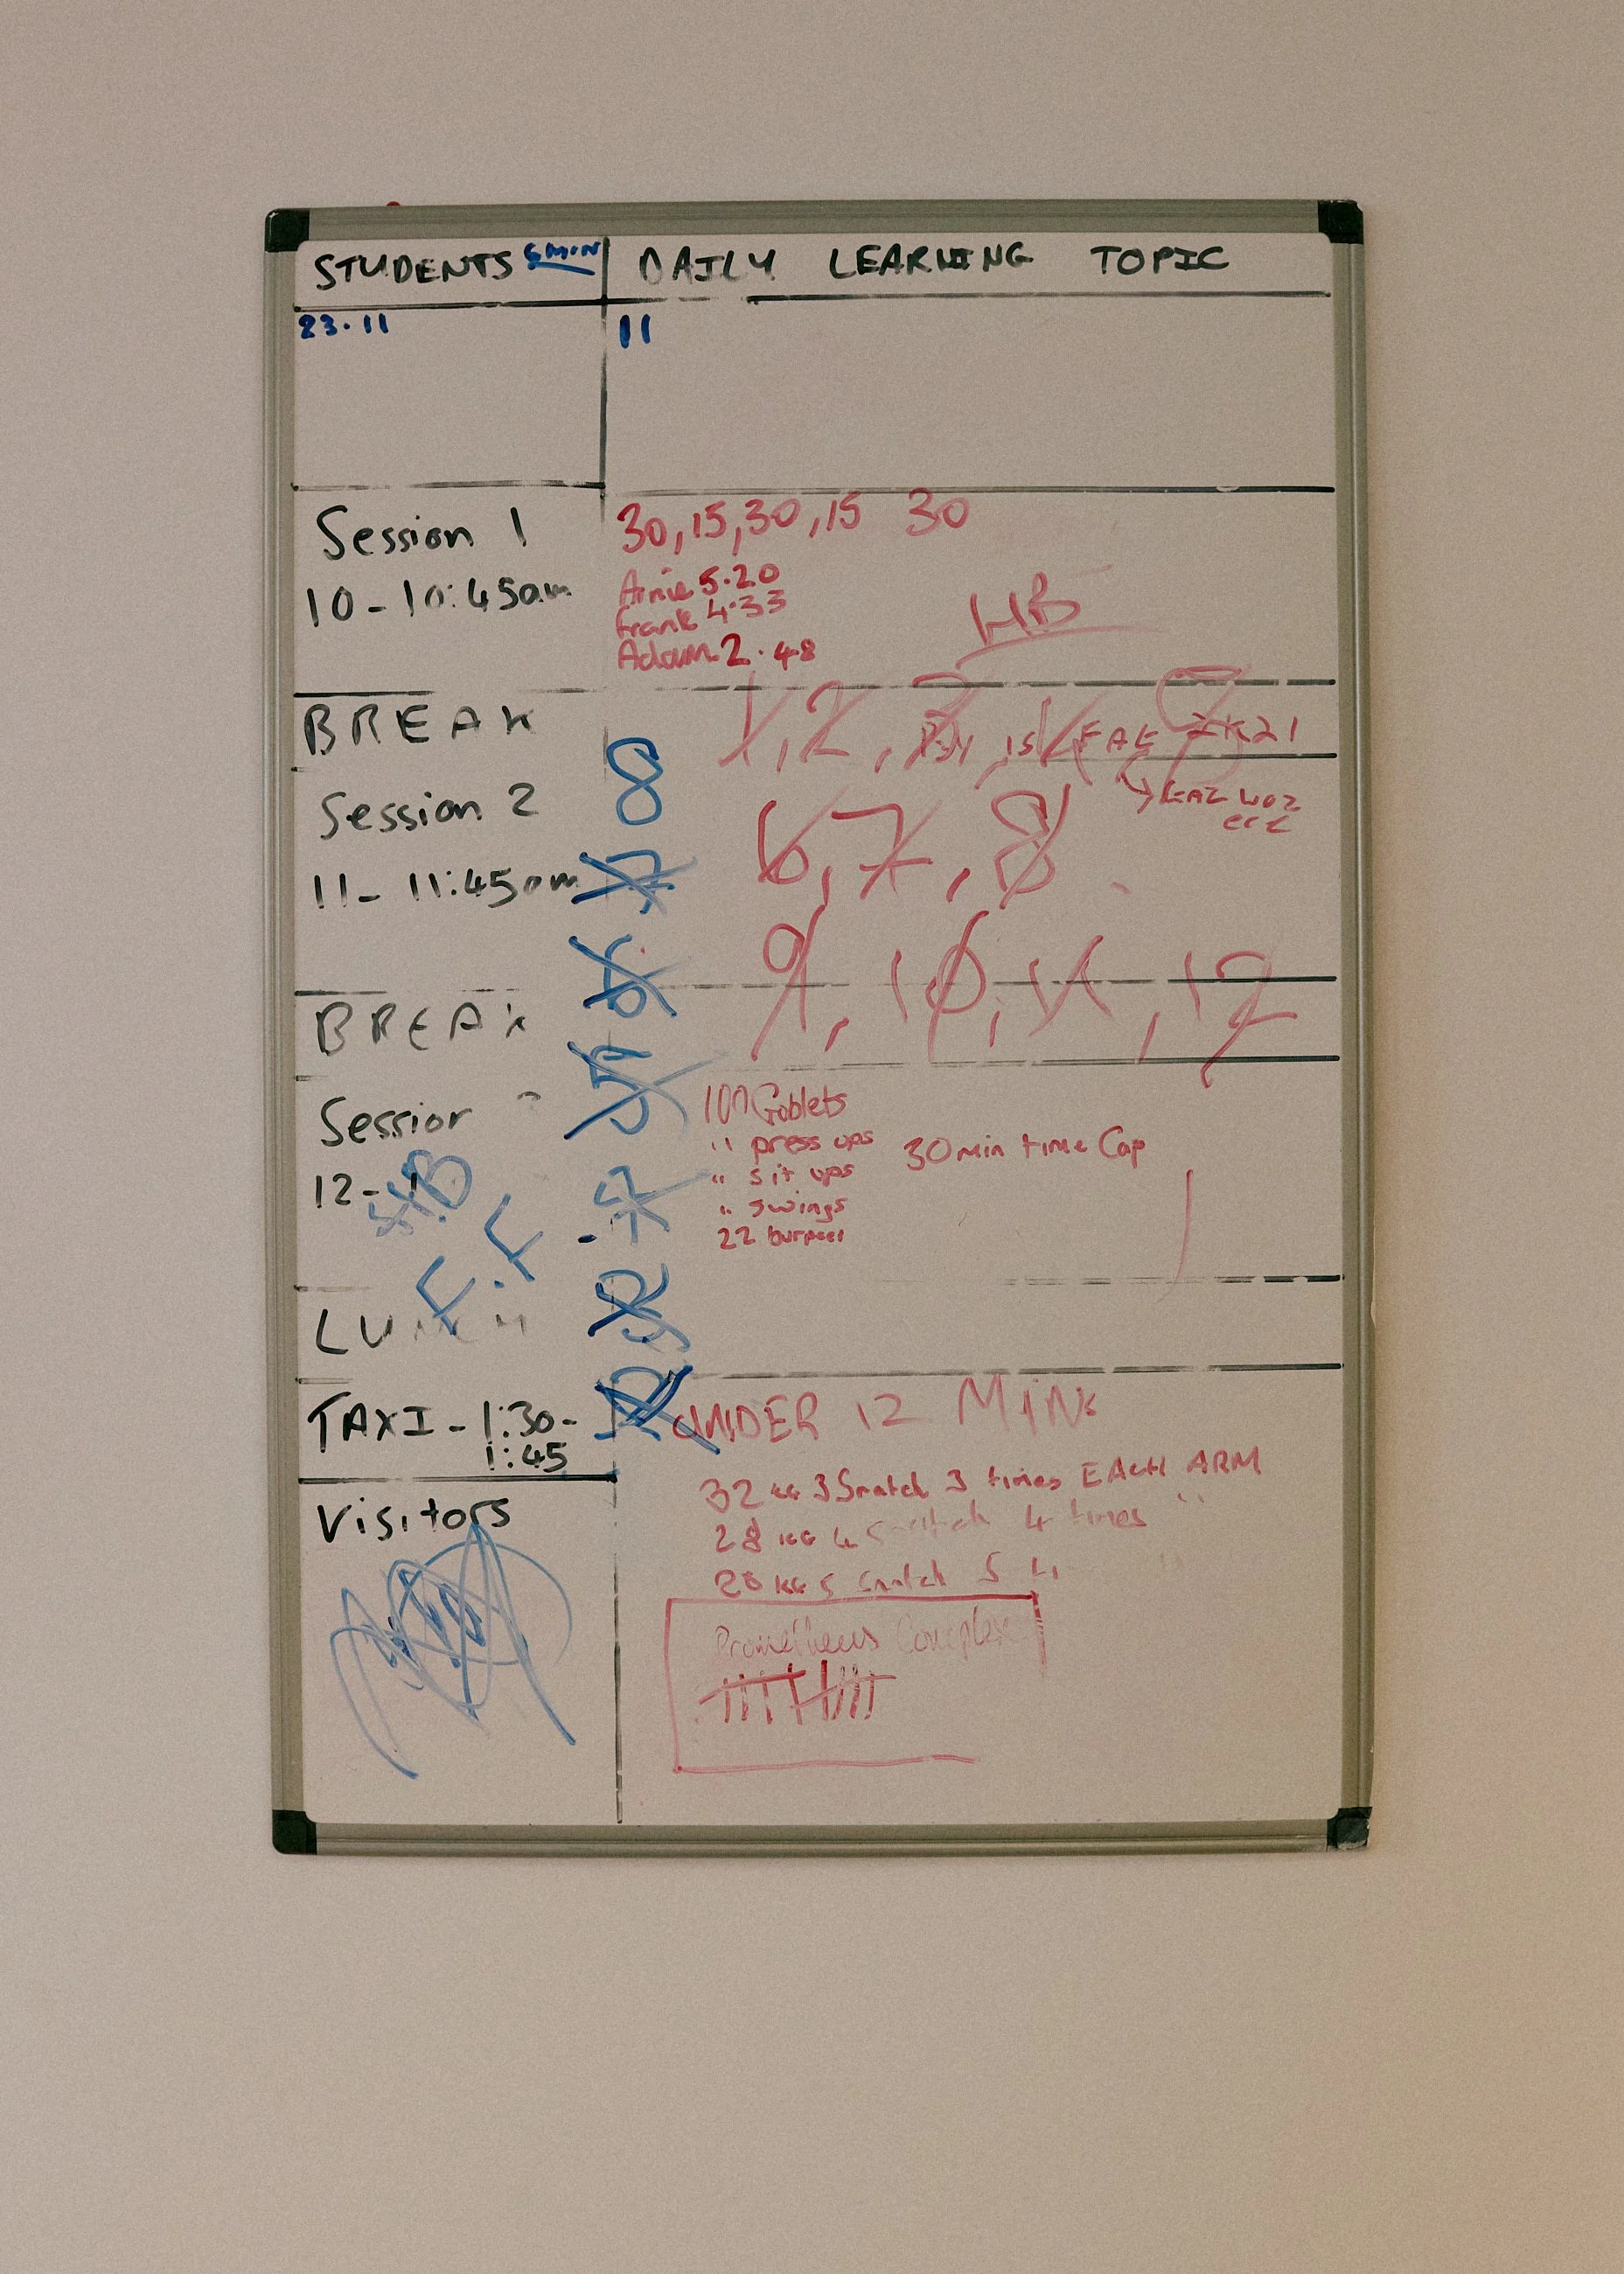 STUDENTS
DAILY LEARNING TOPIC
23.11
11
Session 1
10-10:45am
30, 15, 30, 15 30
Arnie 5.20
Frank 4.33
Adam 2.48
HB
BREAK
1, 2, 3
Session 2
11-11:45am
8
7
6
5
6, 7, 8
9, 10, 11, 12
BREAK
Session
12-
100 Goblets
" press ups
" sit ups
" swings
22 burpees
30 min time Cap
F.F
LUNCH
TAXI - 1:30-
1:45
UNDER 12 MINS
Visitors
32 KG 3 Snatch 3 times EACH ARM
28 KG 4 Snatch 4 times "
Snatch 5
Prometheus Complex